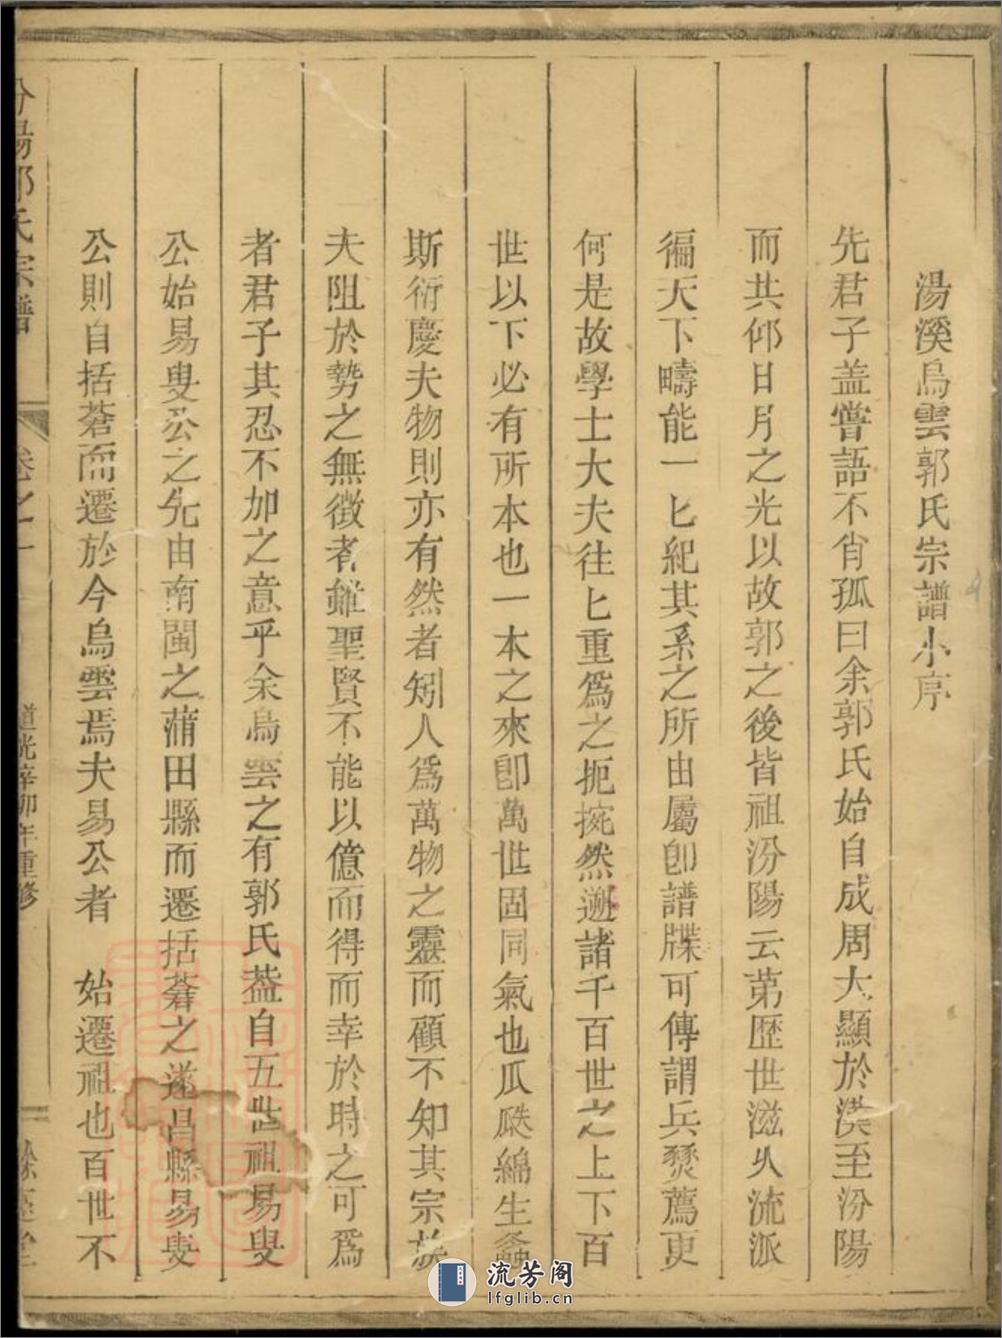 湯溪烏雲郭氏宗譜小序
先君子盖嘗語不肖孤曰余郭氏始自成周大顯於漢至汾陽
而共仰日月之光以故郭之後皆祖汾陽云苐歷世滋久流派
徧天下疇能一匕紀其系之所由屬卽譜牒可傳謂兵燹薦更
何是故學士大夫往匕重爲之扼捥然遡諸千百世之上下百
世以下必有所本也一本之來卽萬世固同氣也瓜瓞綿生螽
斯衍慶夫物則亦有然者矧人爲萬物之靈而顧不知其宗族
夫阻於勢之無徴者雖聖賢不能以億而得而幸於時之可爲
者君子其忍不加之意乎余烏雲之有郭氏葢自五世祖易叟
公始易叟公之先由南閩之蒲田縣而遷括蒼之遂昌縣易叟
公則自括蒼而遷於今烏雲焉夫易公者 始遷祖也百世不
汾陽郭氏宗譜
卷之一
道光辛卯年重修
流芳阁
lfglib.cn